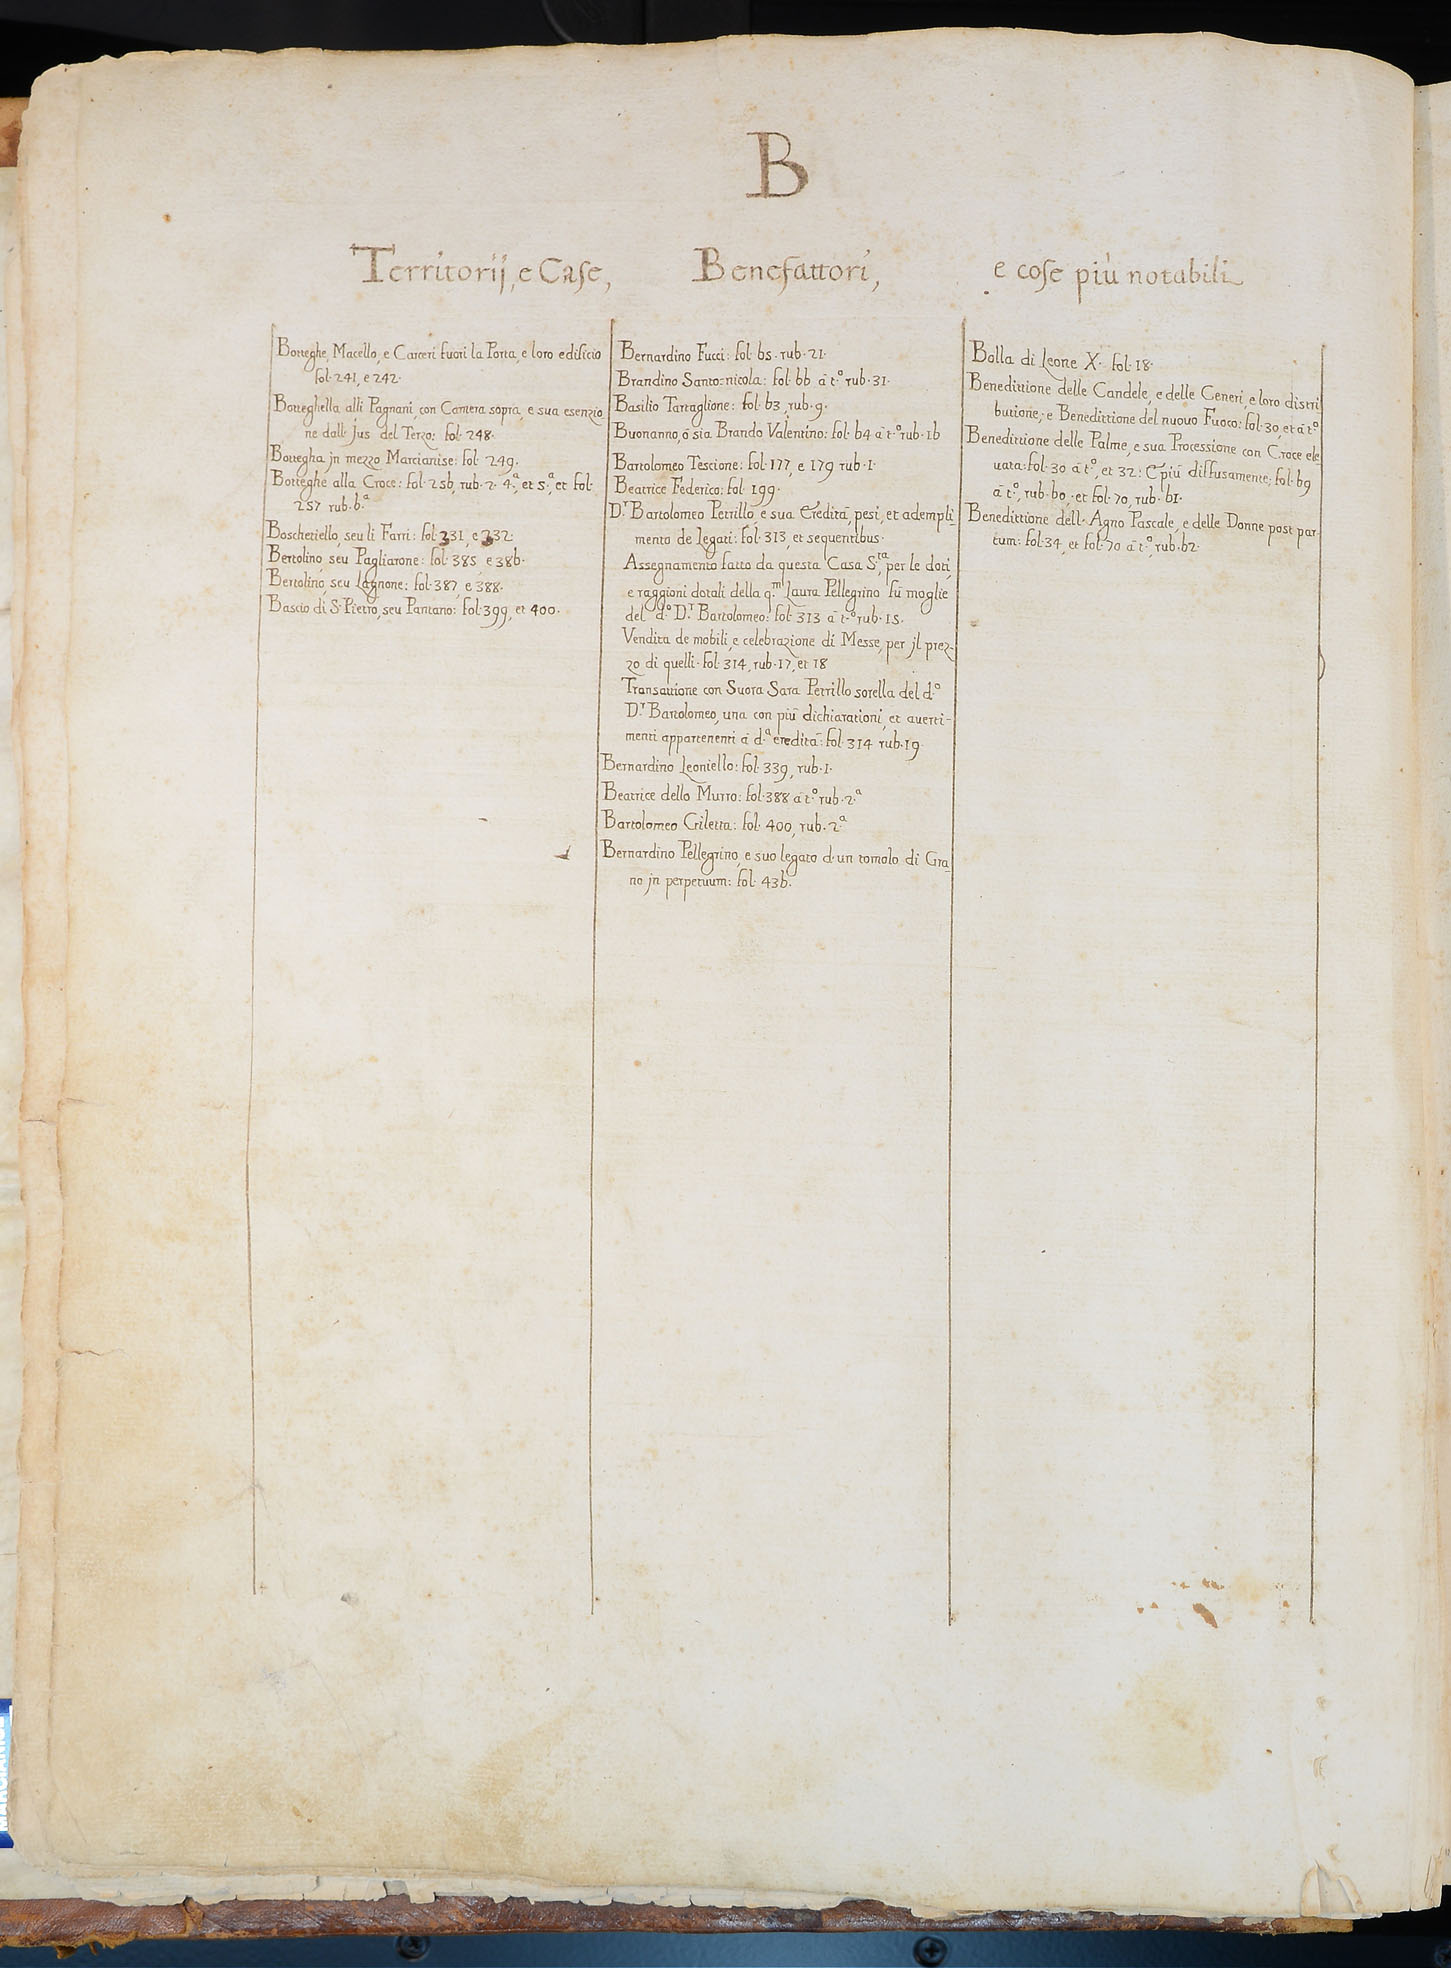 B
Territorij, e Case,
Benefattori,
e cose più notabili
Botteghe, Macello, e Carceri fuori la Porta, e loro edificio
fol· 241, e 242·
Botteghella alli Pagnani, con Camera sopra, e sua esenzio
ne dall· jus del Terzo: fol· 248·
Bottegha jn mezzo Marcianise: fol· 249·
Botteghe alla Croce: fol· 256, rub· 2· 4.ª, et 5.ª, et fol·
257 rub· 6.ª
Boschetiello, seu li Farri: fol· 331, e 332·
Bertolino, seu Pagliarone: fol· 385, e 386·
Bertolino, seu Lagnone: fol· 387, e 388·
Bascio di S· Pietro, seu Pantano: fol· 399, et 400·
Bernardino Fucci: fol· 65· rub· 21·
Brandino Santo=nicola: fol· 66 à t.º rub· 31·
Basilio Tartaglione: fol· 63, rub· 9·
Buonanno, ò sia Brando Valentino: fol· 64 à t.º rub· 16
Bartolomeo Tescione: fol· 177, e 179 rub· 1·
Beatrice Federico: fol· 199·
D.r Bartolomeo Petrillo, e sua Eredità, pesi, et adempli
mento de Legati: fol· 313, et sequentibus·
Assegnamento fatto da questa Casa S.ta, per le doti,
e raggioni dotali della q.m Laura Pellegrino fù moglie
del d.º D.r Bartolomeo: fol· 313 à t.º rub· 15·
Vendita de mobili, e celebrazione di Messe, per jl prez-
zo di quelli· fol· 314, rub· 17, et 18
Transattione con Suora Sara Petrillo sorella del d.º
D.r Bartolomeo, una con più dichiarationi, et auerti-
menti appartenenti à d.ª eredità: fol· 314 rub· 19·
Bernardino Leoniello: fol· 339, rub· 1·
Beatrice dello Murro: fol· 388 à t.º rub· 2.ª
Bartolomeo Ciletta: fol· 400, rub· 2.ª
Bernardino Pellegrino, e suo legato d· un tomolo di Gra
no jn perpetuum: fol· 436·
Bolla di Leone X· fol· 18·
Benedittione delle Candele, e delle Ceneri, e loro distri
butione; e Benedittione del nuouo Fuoco: fol· 30, et à t.º
Benedittione delle Palme, e sua Processione con Croce ele-
uata: fol· 30 à t.º, et 32: E più diffusamente; fol· 69
à t.º, rub· 60, et fol· 70, rub· 61·
Benedittione dell· Agno Pascale, e delle Donne post par-
tum: fol· 34, et fol· 70 à t.º, rub· 62·